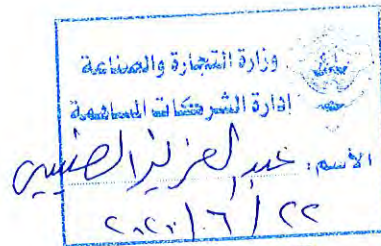 وزارة التجارة والصناعة
إدارة الشركات المساهمة
الأسم: عبد العزيز
٢٢/٦/٢٠٢٠